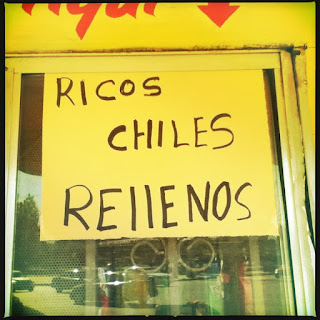 RICOS
CHILES
REllENOS